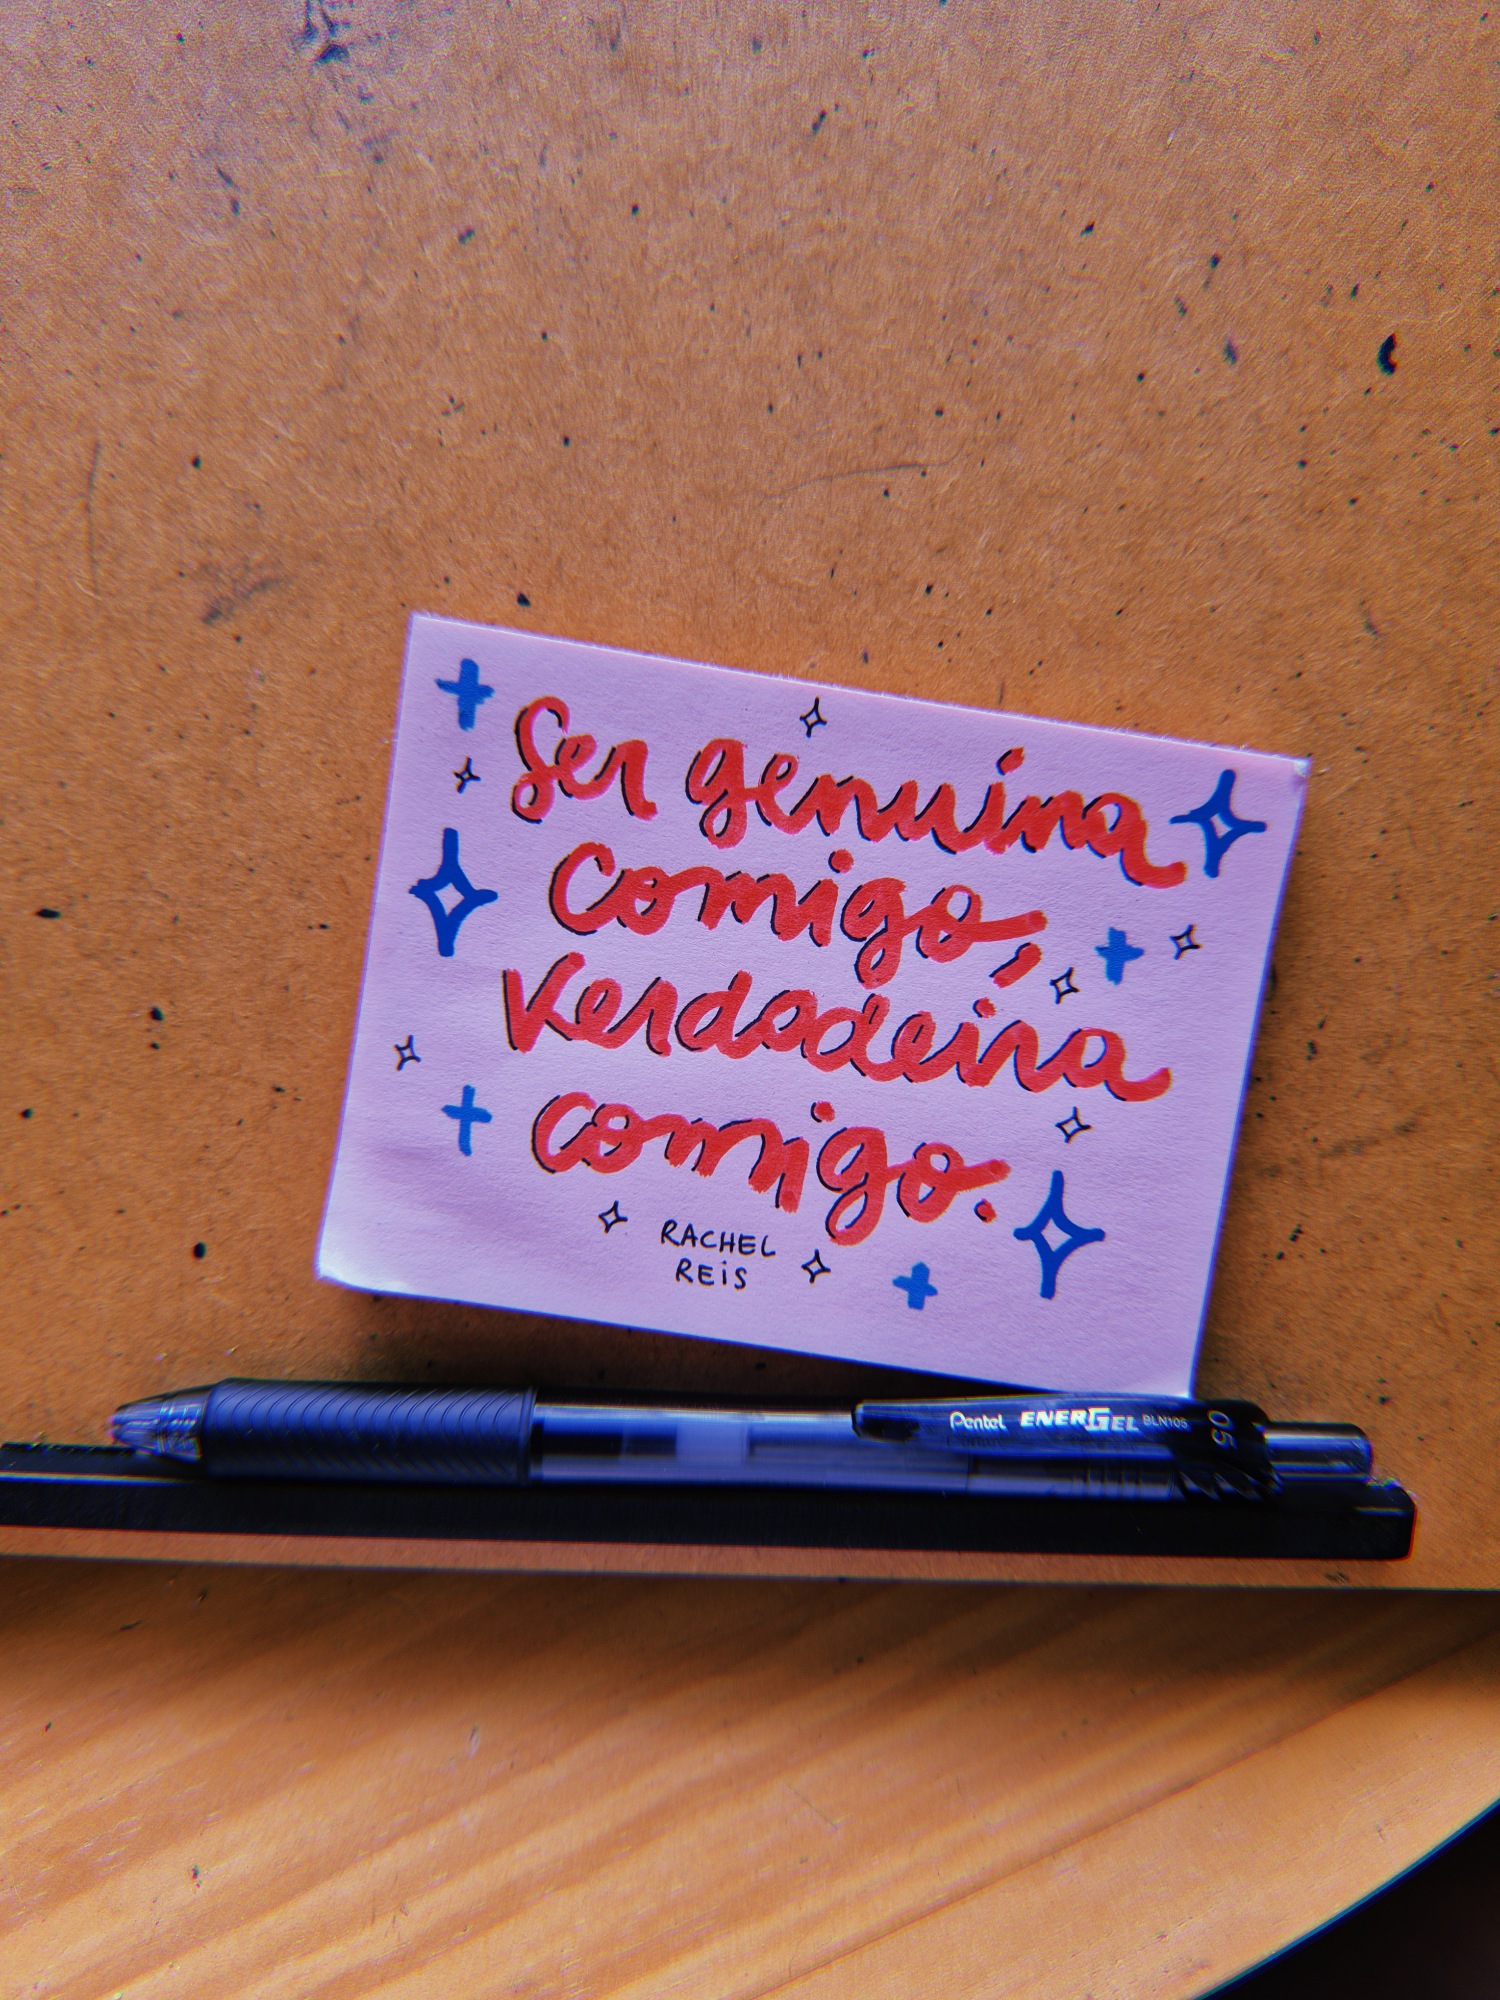 Ser genuina
Comigo,
Verdadeira
comigo.
RACHEL
REIS
Pentel ENERGEL BLN105 05